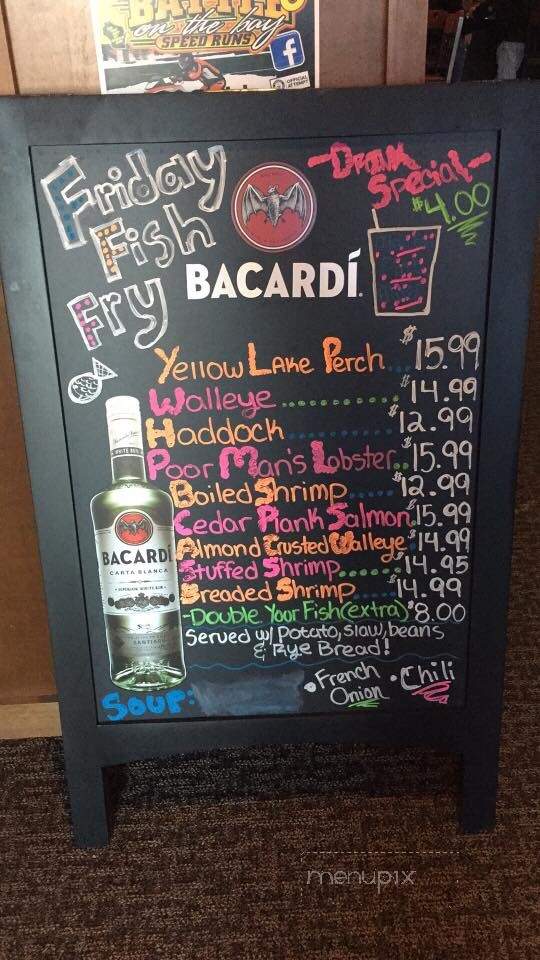 BATTLE
on the bay
SPEED RUNS
f
OFFICIAL
Friday
Fish
Fry
Drink
Special
$4.00
BACARDÍ
Yellow Lake Perch...$15.99
Walleye..............$14.99
Haddock..............$12.99
Poor Man's Lobster..$15.99
Boiled Shrimp.....$12.99
Cedar Plank Salmon $15.99
Almond Crusted Walleye $14.99
Stuffed Shrimp......$14.95
Breaded Shrimp...$14.99
-Double Your Fish (extra) $8.00
Served w/ Potato, slaw, beans
& Rye Bread!
Soup:
• French
Onion
• Chili
BACARDÍ
CARTA BLANCA
SUPERIOR WHITE RUM
menupix